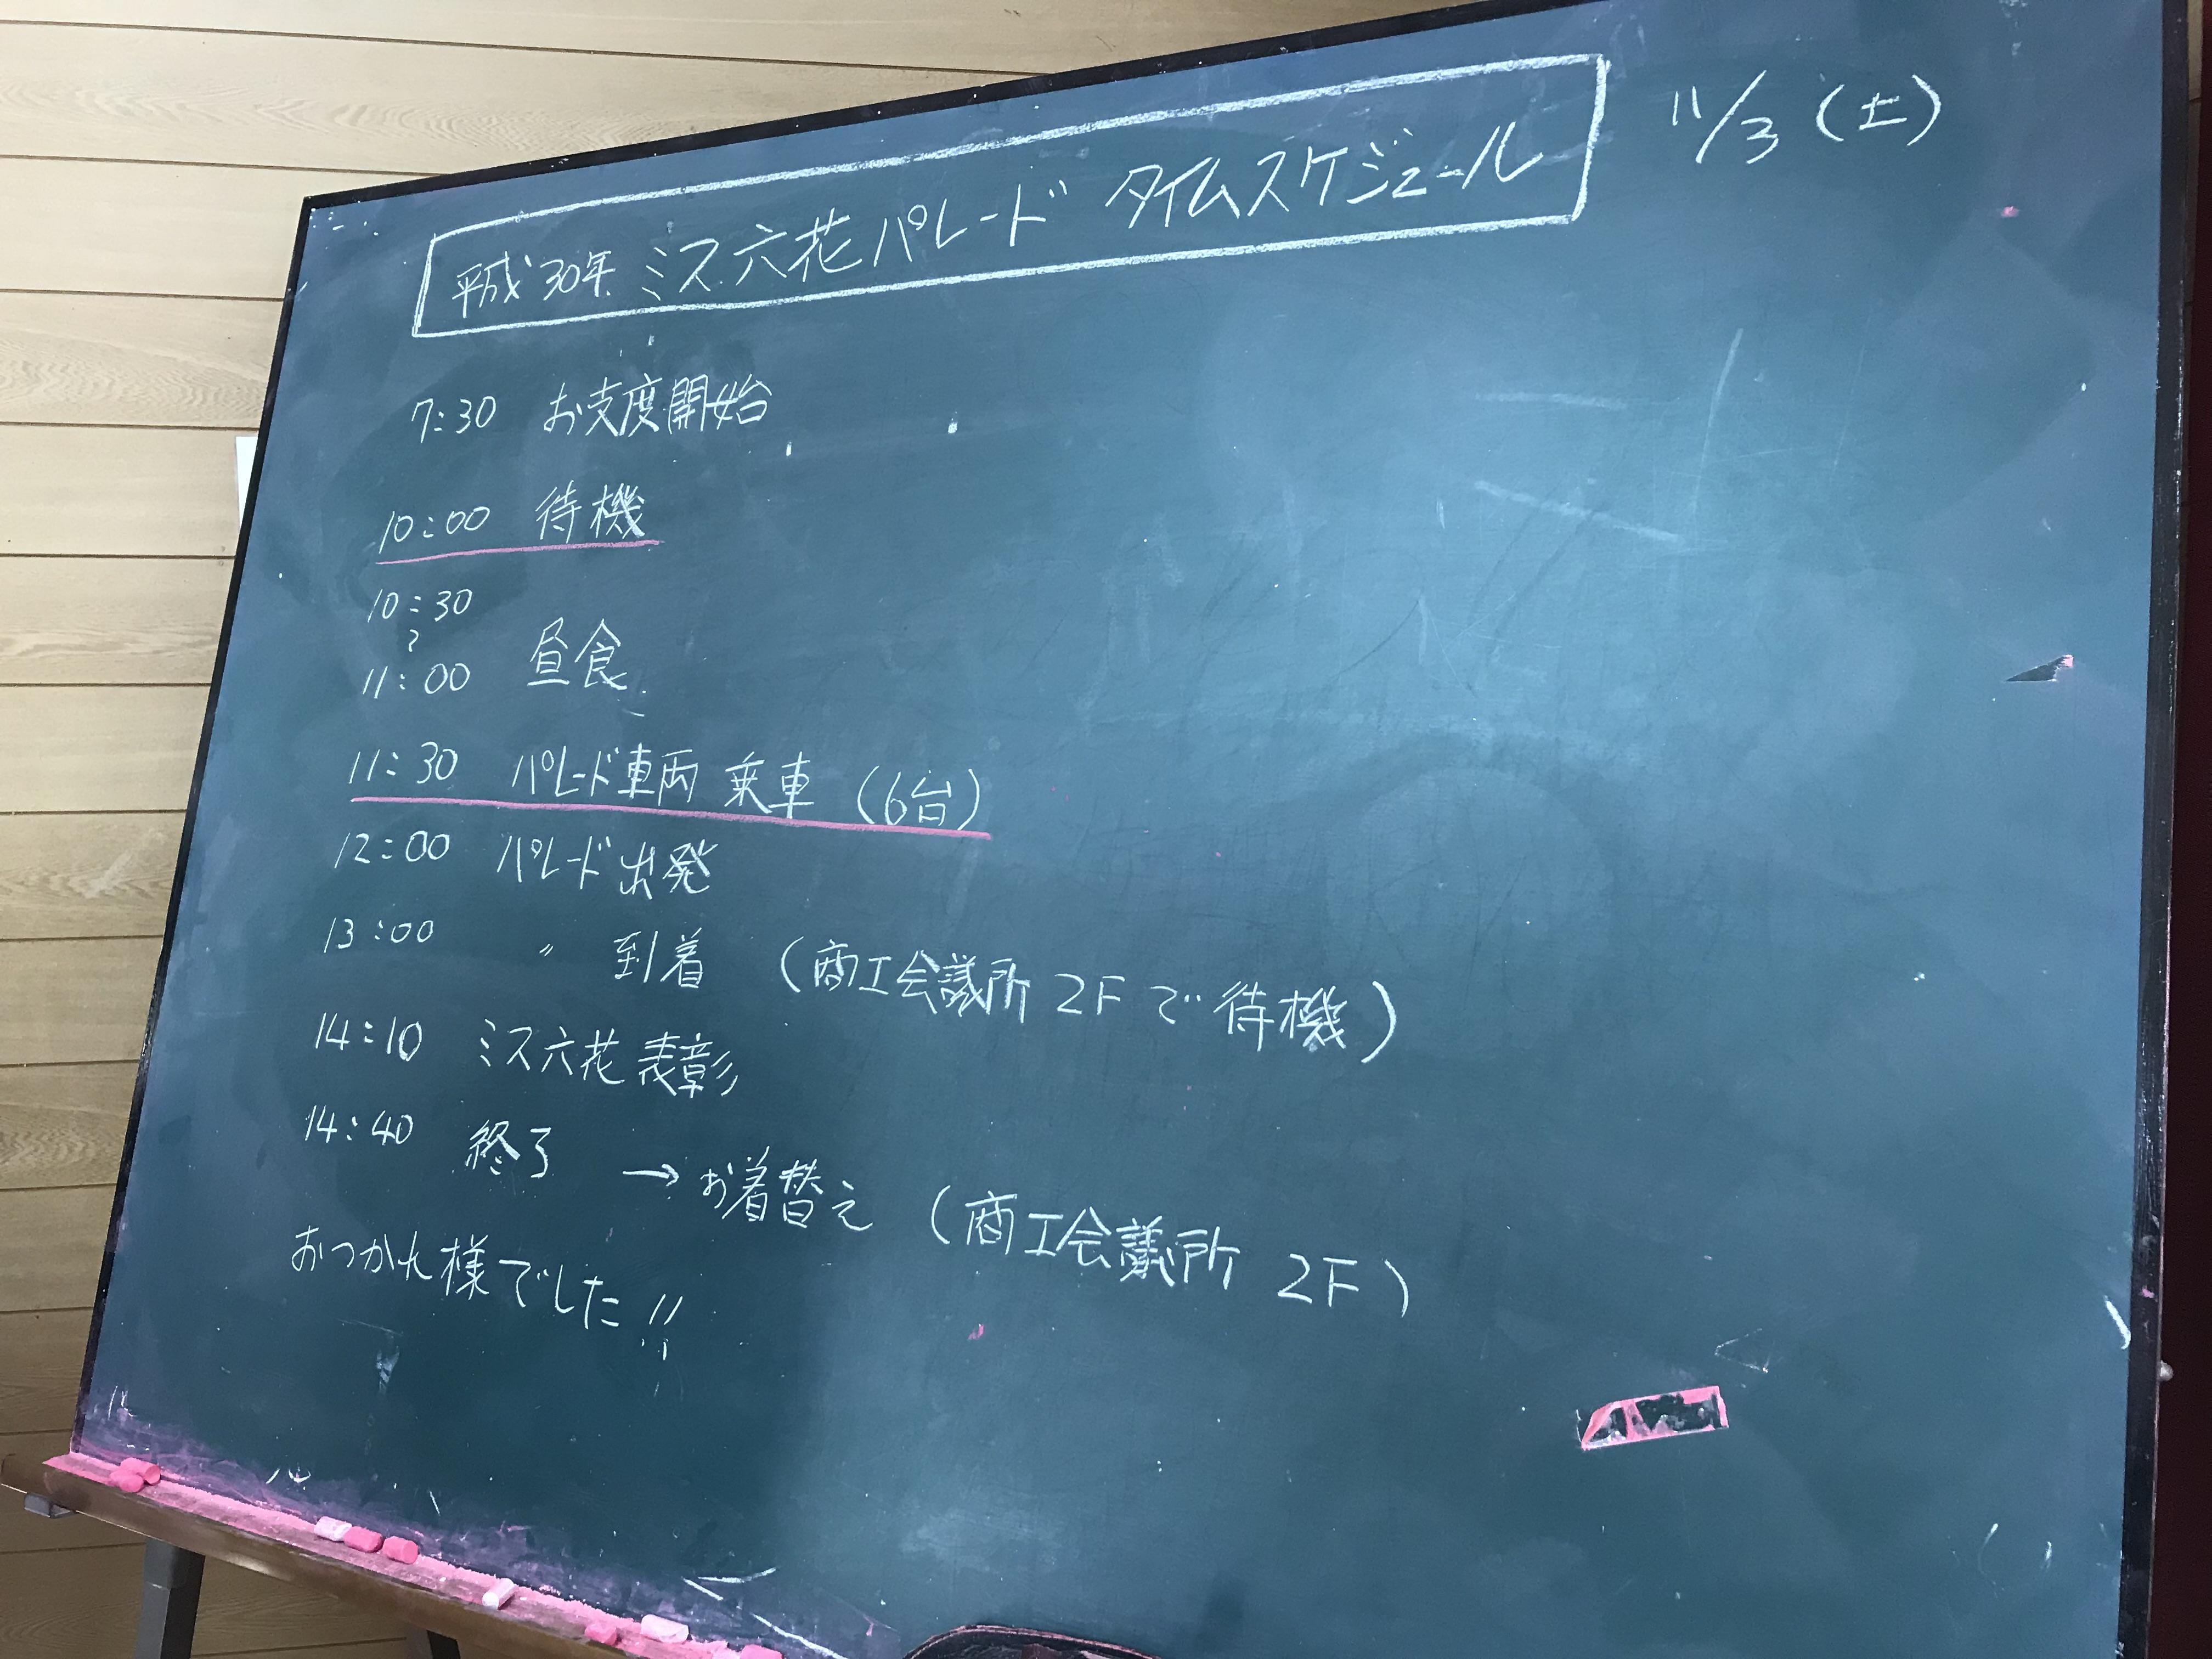 平成30年 ミス六花パレード タイムスケジュール
11/3(土)
7:30 お支度開始
10:00 待機
10:30
〜 昼食
11:00
11:30 パレード車両 乗車 (6台)
12:00 パレード出発
13:00 〃 到着 (商工会議所 2Fで待機)
14:10 ミス六花 表彰
14:40 終了 → お着替え (商工会議所 2F)
おつかれ様でした!!